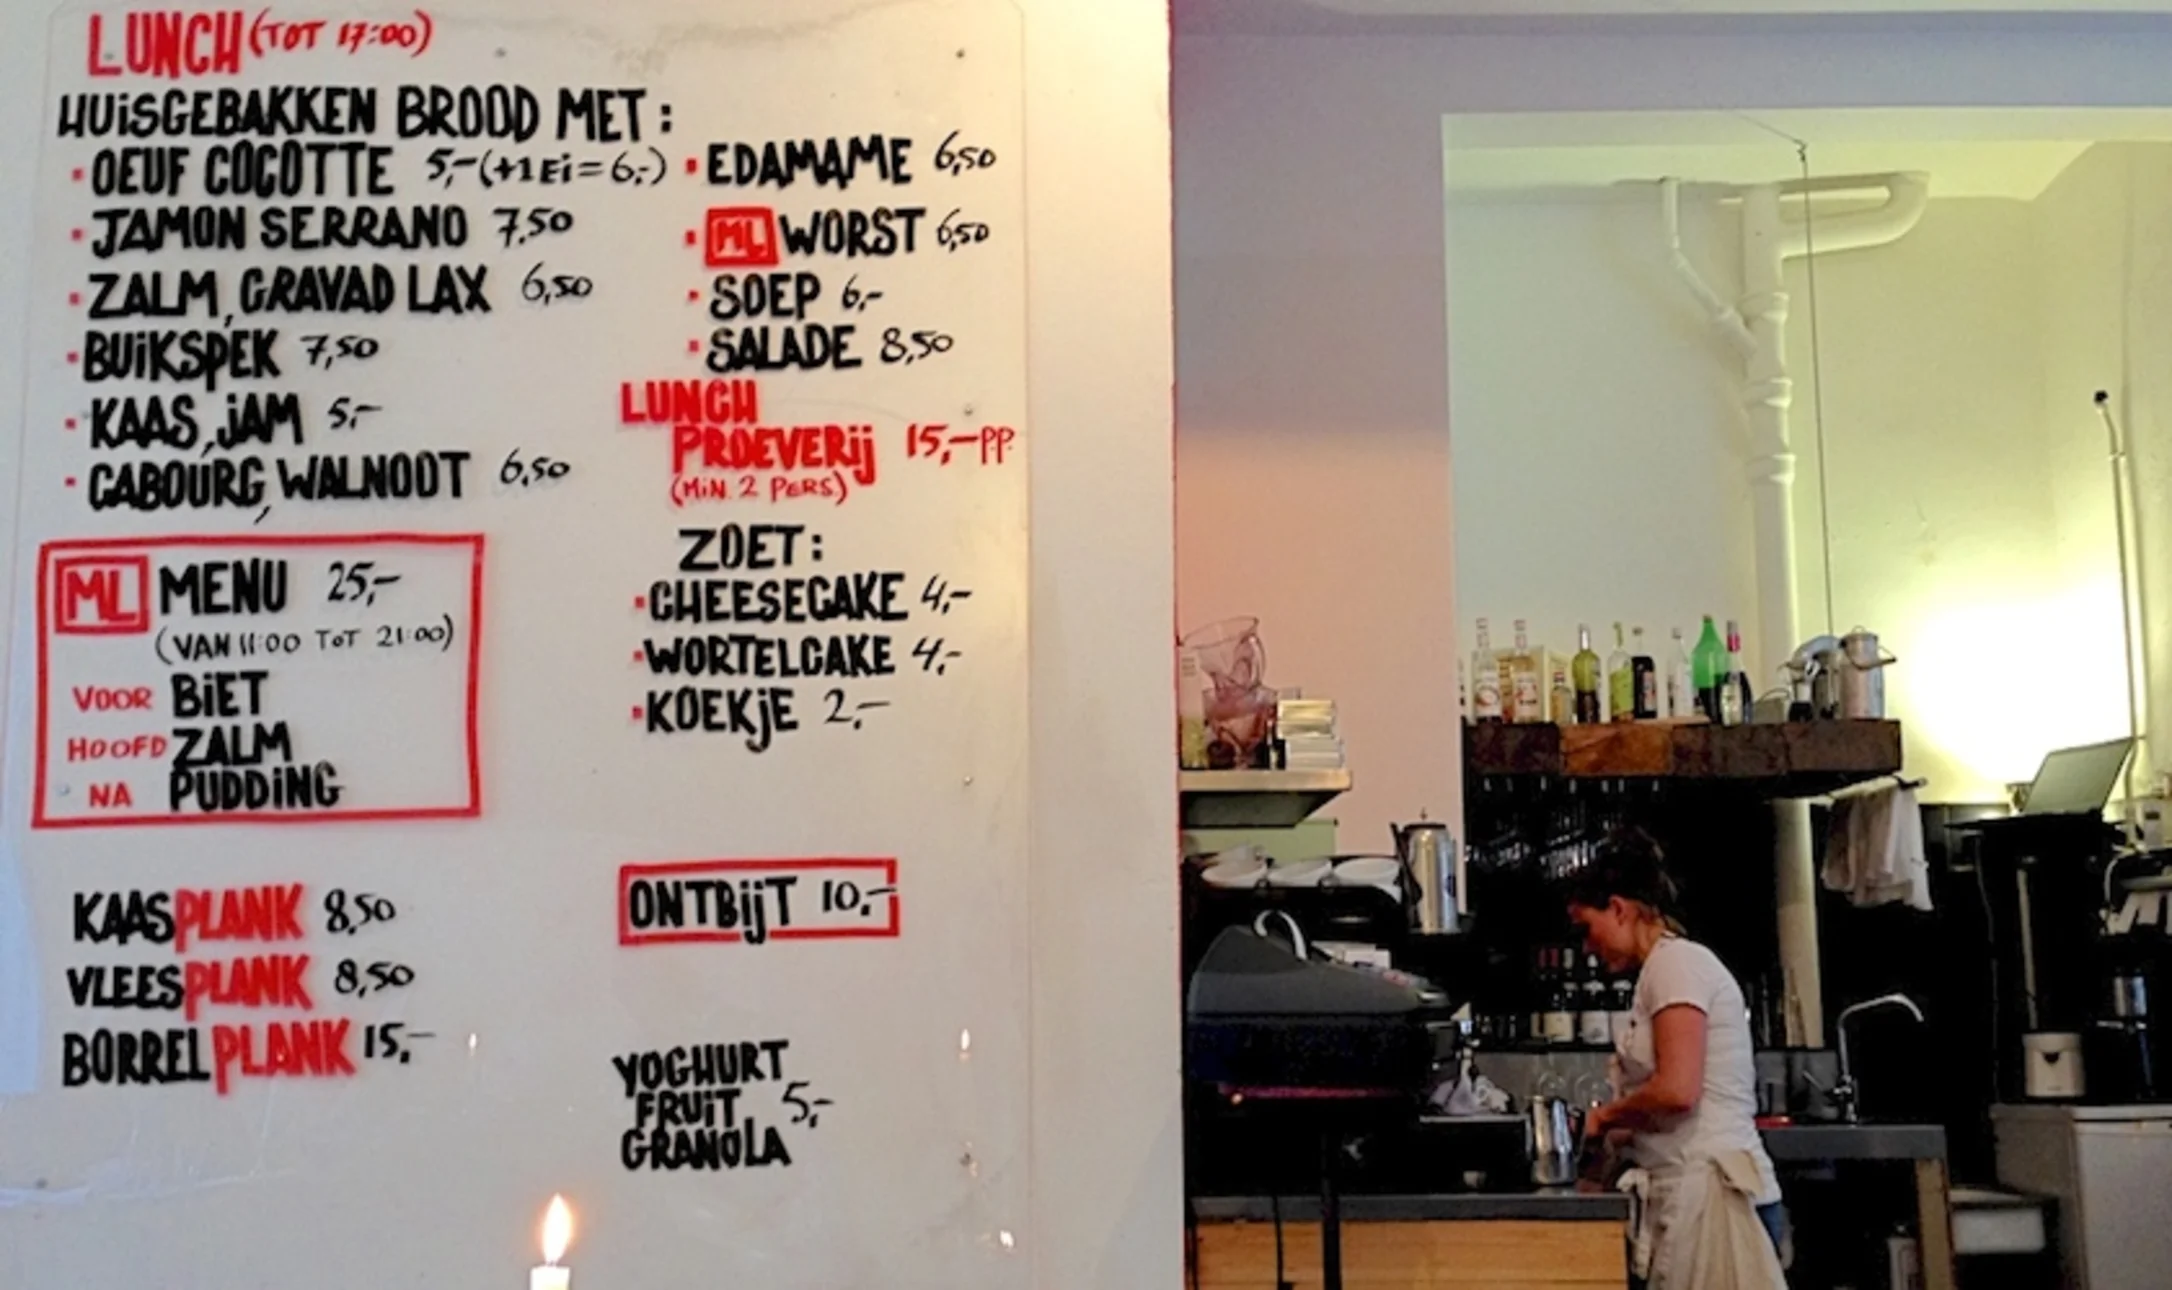 LUNCH (TOT 17:00)
HUiSGEBAKKEN BROOD MET:
· OEUF COCOTTE 5,- (+1 Ei = 6,-)
· JAMON SERRANO 7.50
· ZALM, GRAVAD LAX 6,50
· BUiKSPEK 7,50
· KAAS, jAM 5,-
· CABOURG, WALNOOT 6,50
· EDAMAME 6,50
· ML WORST 6,50
· SOEP 6,-
· SALADE 8,50
LUNCH
PROEVERij 15,- P.P.
(MiN. 2 PERS)
ZOET:
· CHEESECAKE 4,-
· WORTELCAKE 4,-
· KOEKjE 2,-
ML MENU 25,-
(VAN 11:00 TOT 21:00)
VOOR BiET
HOOFD ZALM
NA PUDDiNG
KAASPLANK 8,50
VLEESPLANK 8,50
BORRELPLANK 15,-
ONTBijT 10,-
YOGHURT
FRUiT 5,-
GRANOLA